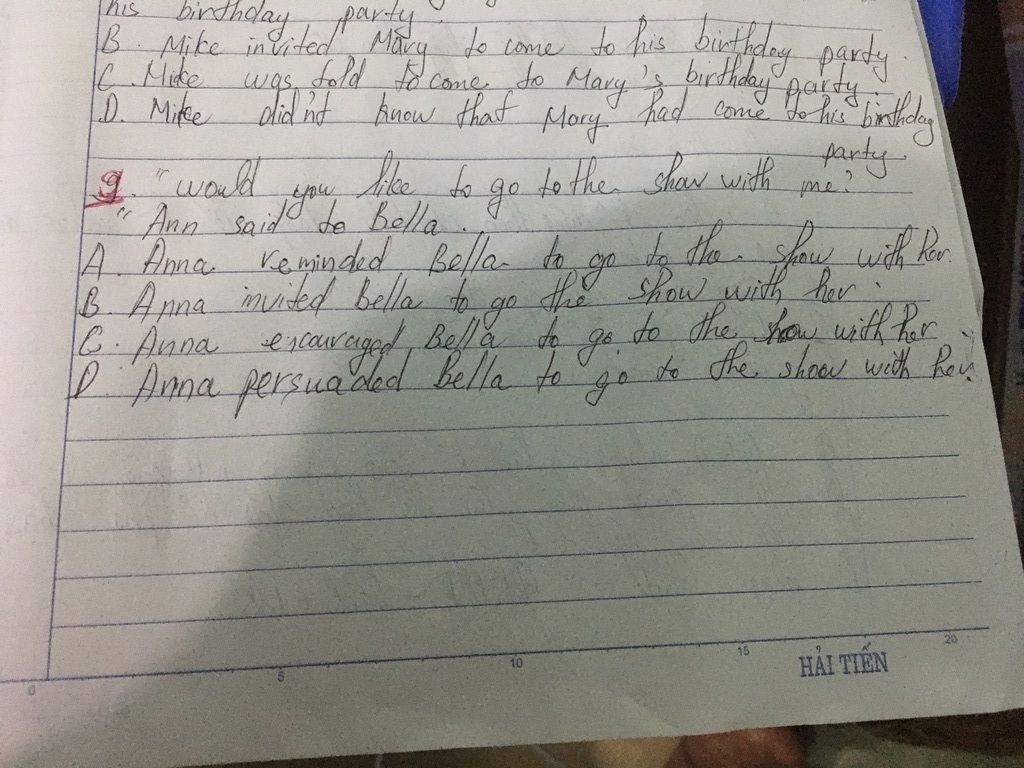 his birthday party.
B. Mike invited Mary to come to his birthday party.
C. Mike was told to come to Mary's birthday party.
D. Mike didn't know that Mary had come to his birthday
party.
9. "would you like to go to the show with me?
" Ann said to Bella.
A. Anna reminded Bella to go to the show with her.
B. Anna invited Bella to go the show with her.
C. Anna encouraged Bella to go to the show with her.
D. Anna persuaded Bella to go to the show with her.
0 5 10 15 20
HẢI TIẾN